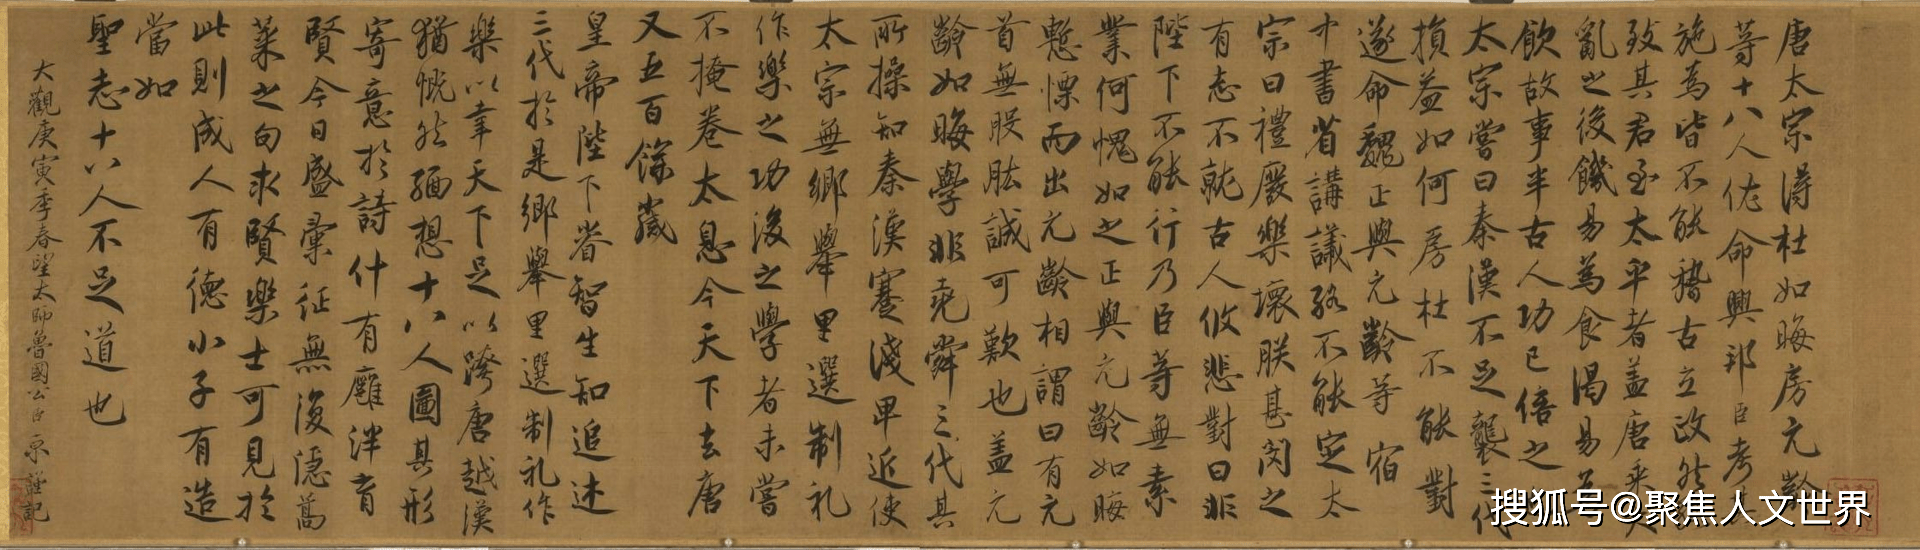 唐太宗得杜如晦房元齡
等十八人佐命興邦臣考
施為皆不能稽古立政然
致其君至太平者蓋唐乘
亂之後饑易為食渴易
飲故事半古人功已倍之
太宗嘗曰秦漢不足襲三代
損益如何房杜不能對
遂命魏正與元齡等宿
中書省講議終不能定太
宗曰禮廢樂壞朕甚閔之
有志不就古人攸悲對曰非
陛下不能行乃臣等無素
業何愧如之正與元齡如晦
慙慄而出元齡相謂曰有元
首無股肱誠可歎也蓋元
齡如晦學非堯舜三代其
所操知秦漢蹇淺卑近使
太宗無鄉舉里選制礼
作樂之功後之學者未嘗
不掩卷太息今天下去唐
又五百餘歲
皇帝陛下睿智生知追述
三代於是鄉舉里選制礼作
樂以幸天下足以跨唐越漢
猶慨然緬想十八人圖其形
寄意於詩什有廱泮育
賢今日盛彙征無復隱蒿
萊之句求賢樂士可見於
此則成人有德小子有造
當如
聖志十八人不足道也
大觀庚寅季春望太師魯國公臣京謹記
搜狐号@聚焦人文世界